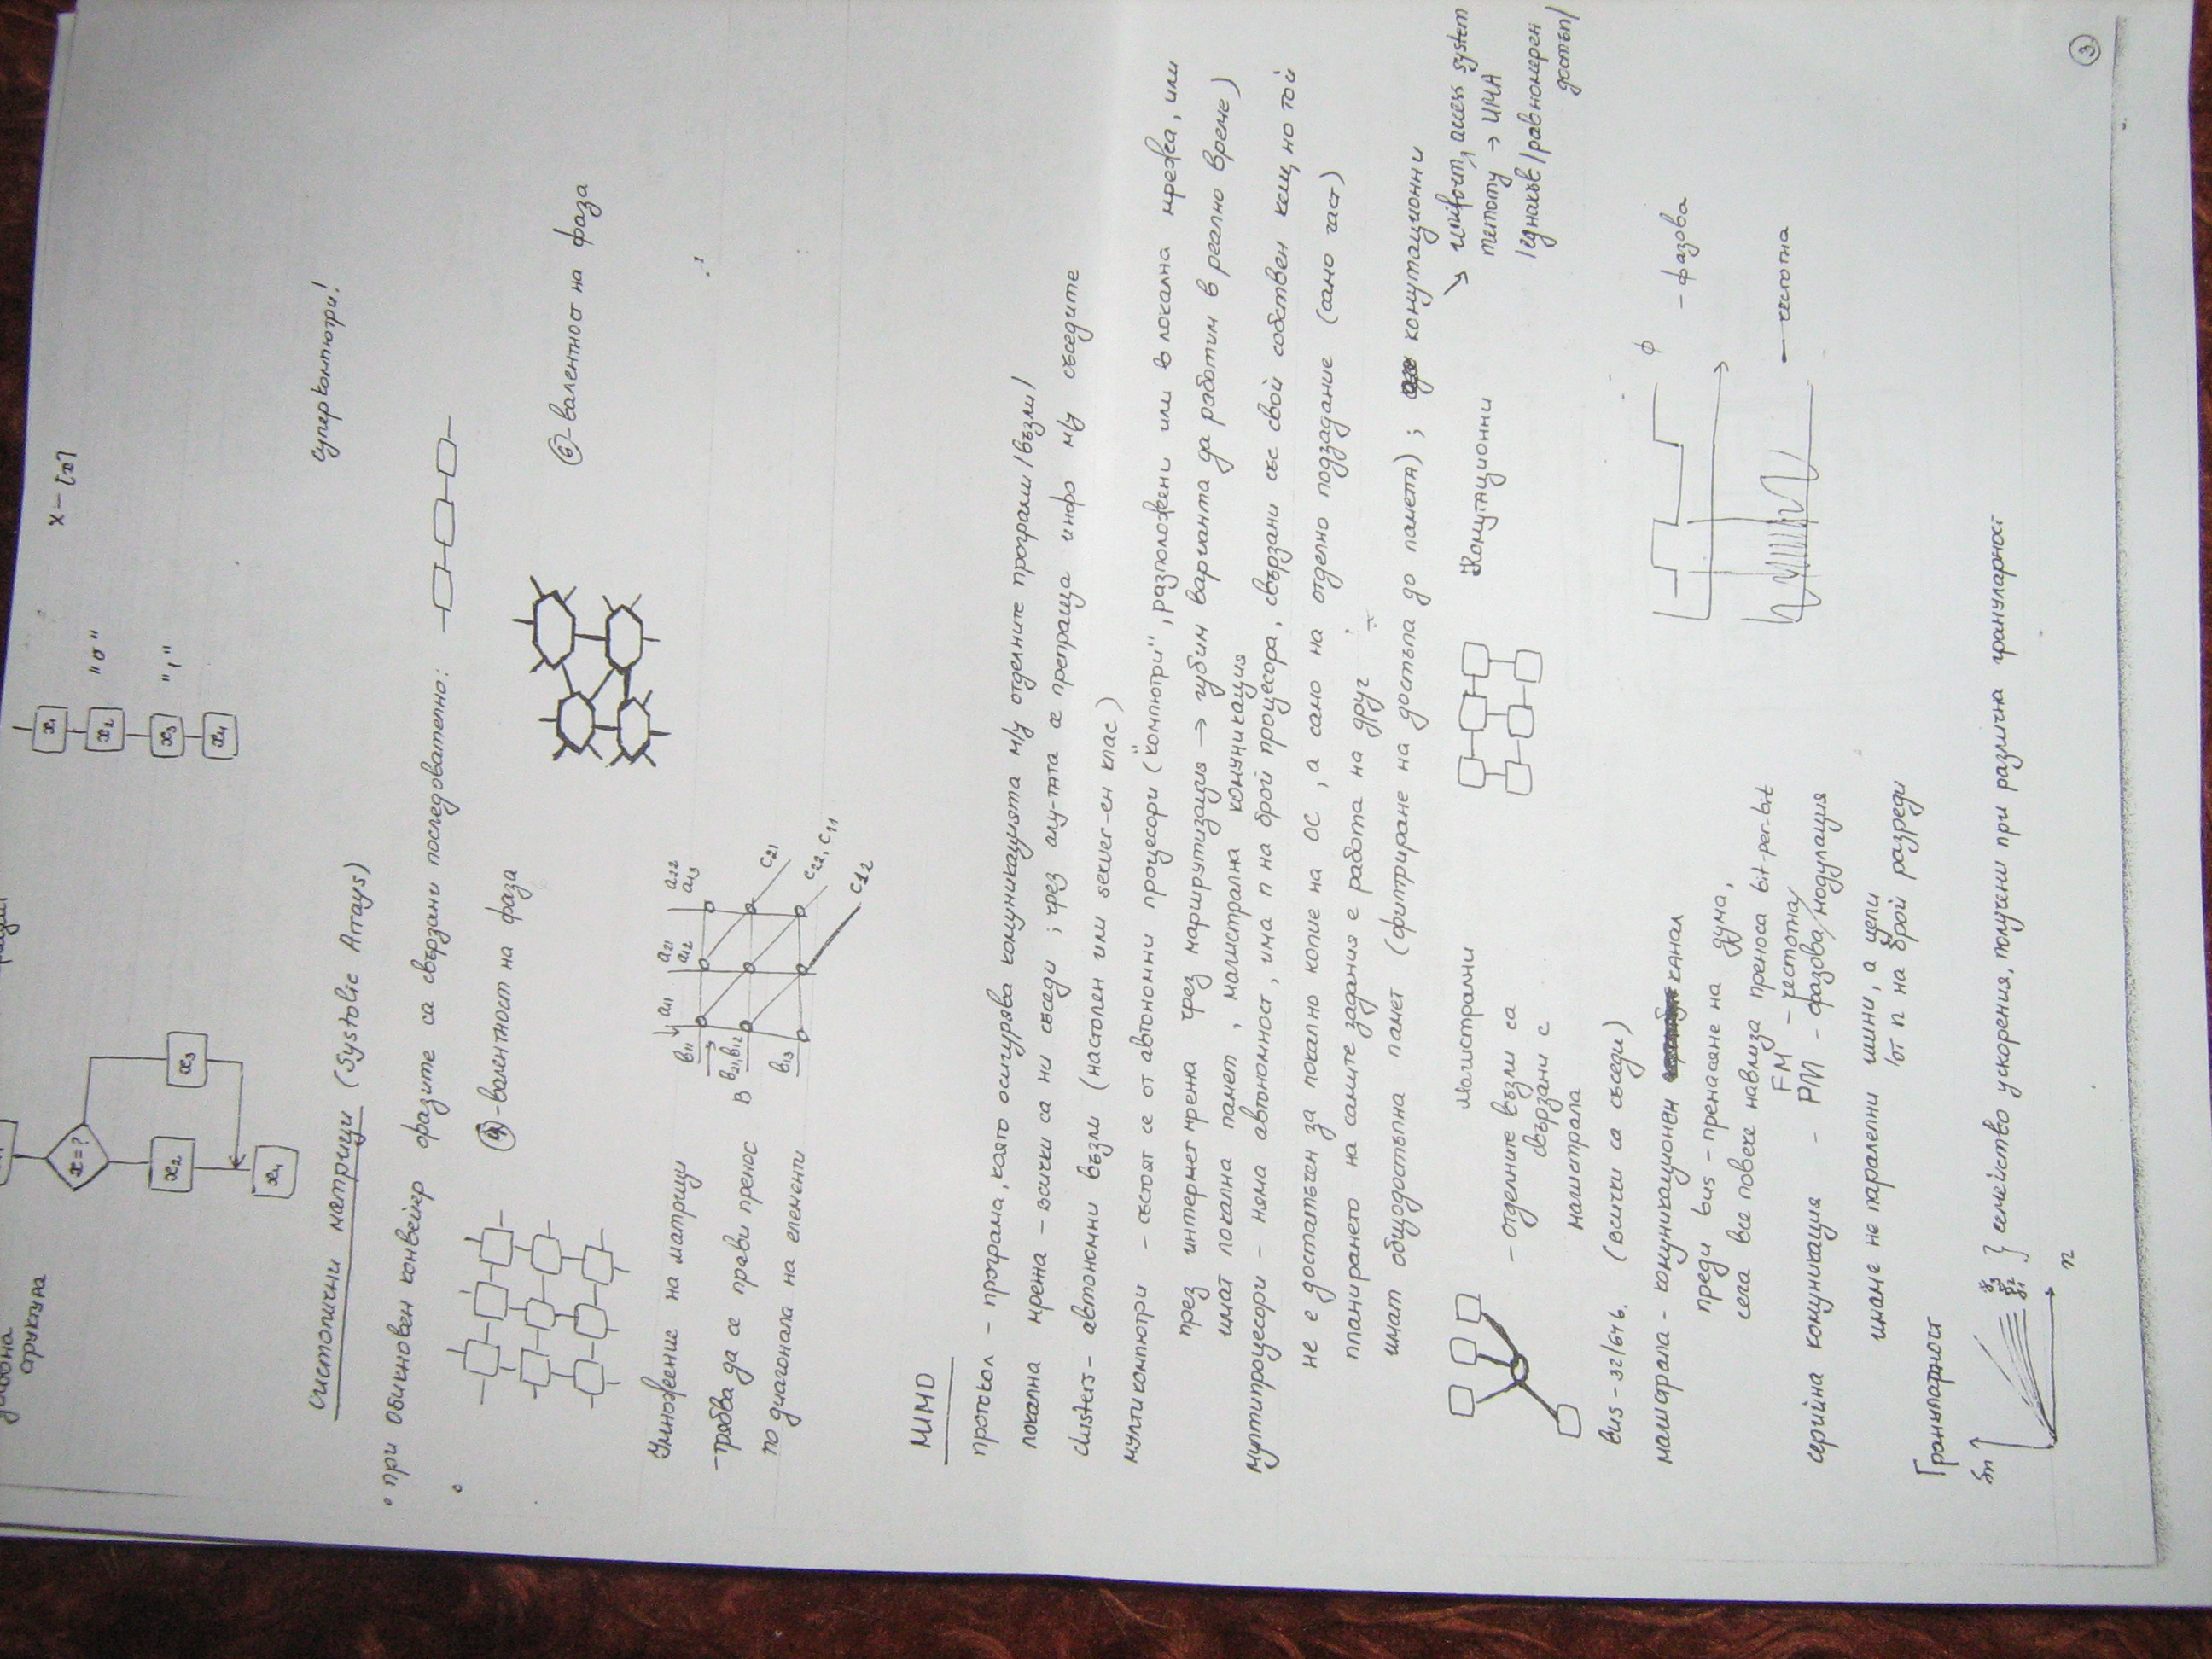 структура
x=?
x2
x3
x4
x1
x2
x3
x4
"0"
"1"
x - [x]
Систолични матрици (Systolic Arrays)
Суперкомпютри!
• при обикновен конвейер фазите са свързани последователно:
④-валентност на фаза
⑥-валентност на фаза
Умножение на матрици
-трябва да се прави пренос
по диагонала на елементи
B
a11
a21
a12
a22
a13
b11
b21, b12
b13
c21
c22, c11
c12
MIMD
протокол - програма, която осигурява комуникацията м/у отделните програми /възли/
локална мрежа - всички са ни съседи ; чрез алу-тата се препраща инфо м/у съседите
clusters - автономни възли (настолен или server-ен клас)
мултикомпютри - състоят се от автономни процесори ("компютри", разположени или в локална мрежа, или
през интернет мрежа чрез маршрутизация → губим варианта да работим в реално време)
имат локална памет, магистрална комуникация
мултипроцесори - няма автономност, има n на брой процесора, свързани със свой собствен кеш, но той
не е достатъчен за локално копие на ОС, а само на отделно подзадание (само част)
планирането на самите задания е работа на друг
имат общодостъпна памет (филтриране на достъпа до памета) ; комутационни
↘ uniform access system
memory → UMA
/еднакъв/равномерен
достъп/
Магистрални
- отделните възли са
свързани с
магистрала
Комутационни
bus - 32/64b. (всички са съседи)
магистрала - комуникационен канал
преди bus - пренасяне на дума,
сега все повече навлиза преноса bit-per-bit
серийна комуникация - FM - честотна/
PM - фазова/модулация
имаме не паралелни шини, а цели
/от n на брой разреди
ϕ
- фазова
- честотна
Грануларност
Sn
n
g3
g2
g1
} семейство ускорения, получени при различна грануларност
③